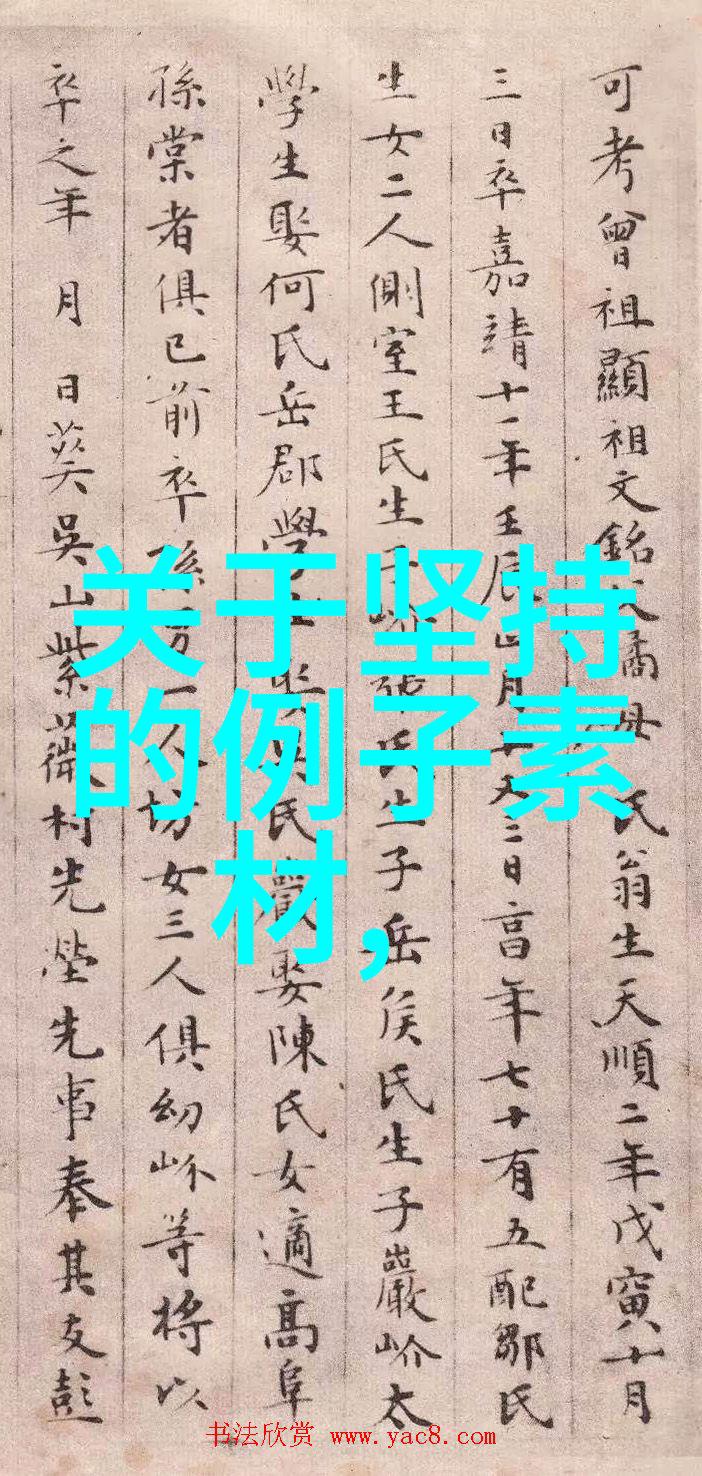 可考曾祖顯祖文銘父矞母氏翁生天順二年戊寅十月
三日卒嘉靖十一年壬辰四月二日高年七十有五配鄒氏
生女二人側室王氏生子岳侯氏生子巖岕太
學生娶何氏岳郡學生娶吳氏巖娶陳氏女適高阜
孫棠者俱已前卒孫男一人坊女三人俱幼岕等將以
卒之年 月 日葬吳山紫薇村先塋先事奉其友彭
关于坚持
的例子素
材,
书法欣赏 www.yac8.com